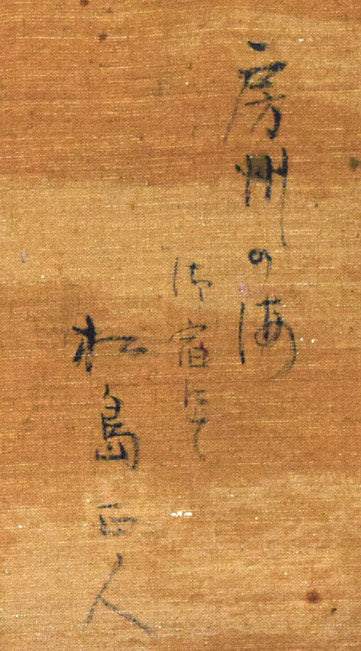 房州の海
御宿にて
松島正人